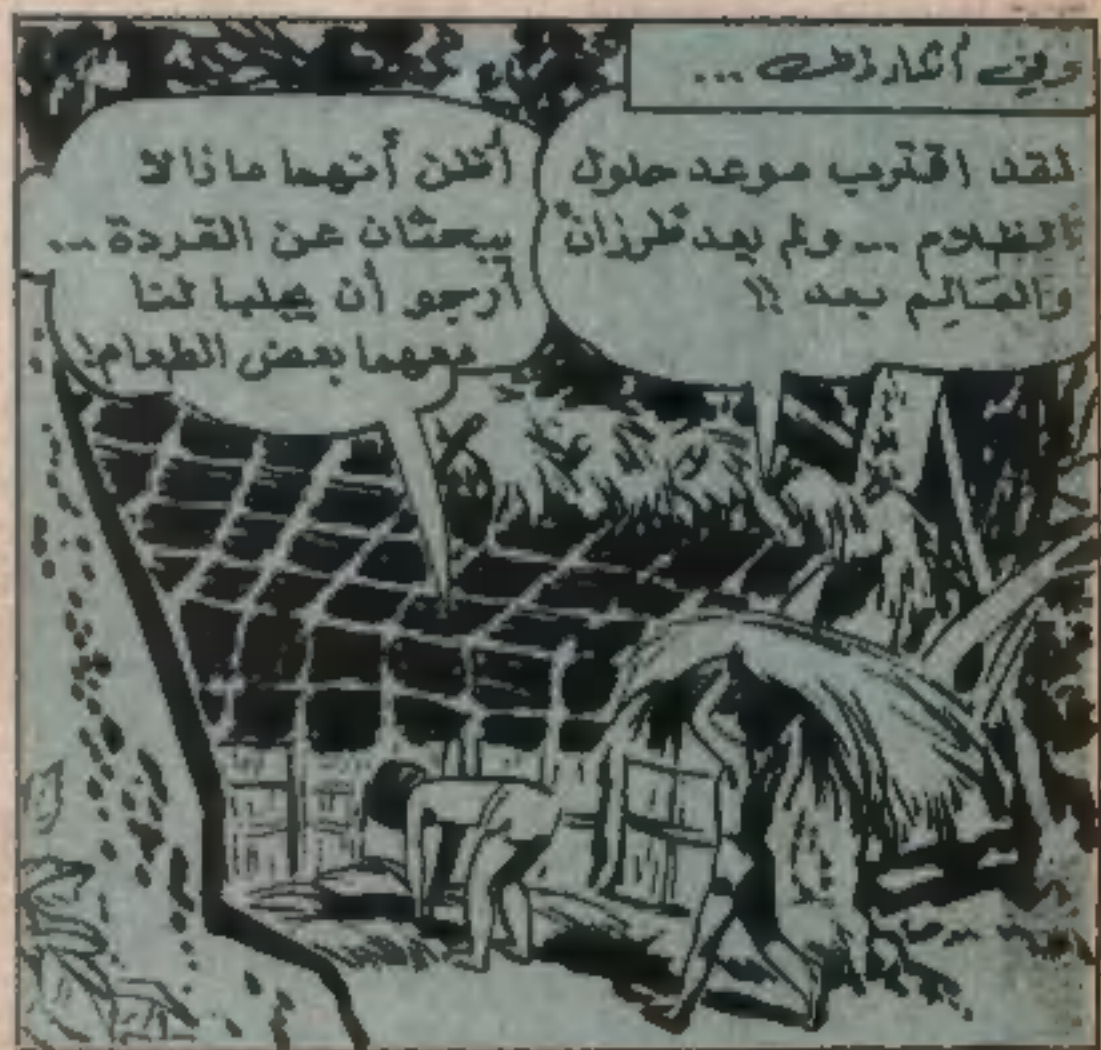 وفى أثناء ذلك ...
لقد اقترب موعد حلول
الظلام ... ولم يعد "طرزان"
والعالِم بعد !!
أظن أنهما مازالا
يبحثان عن القردة ...
أرجو أن يجلبا لنا
معهما بعض الطعام!